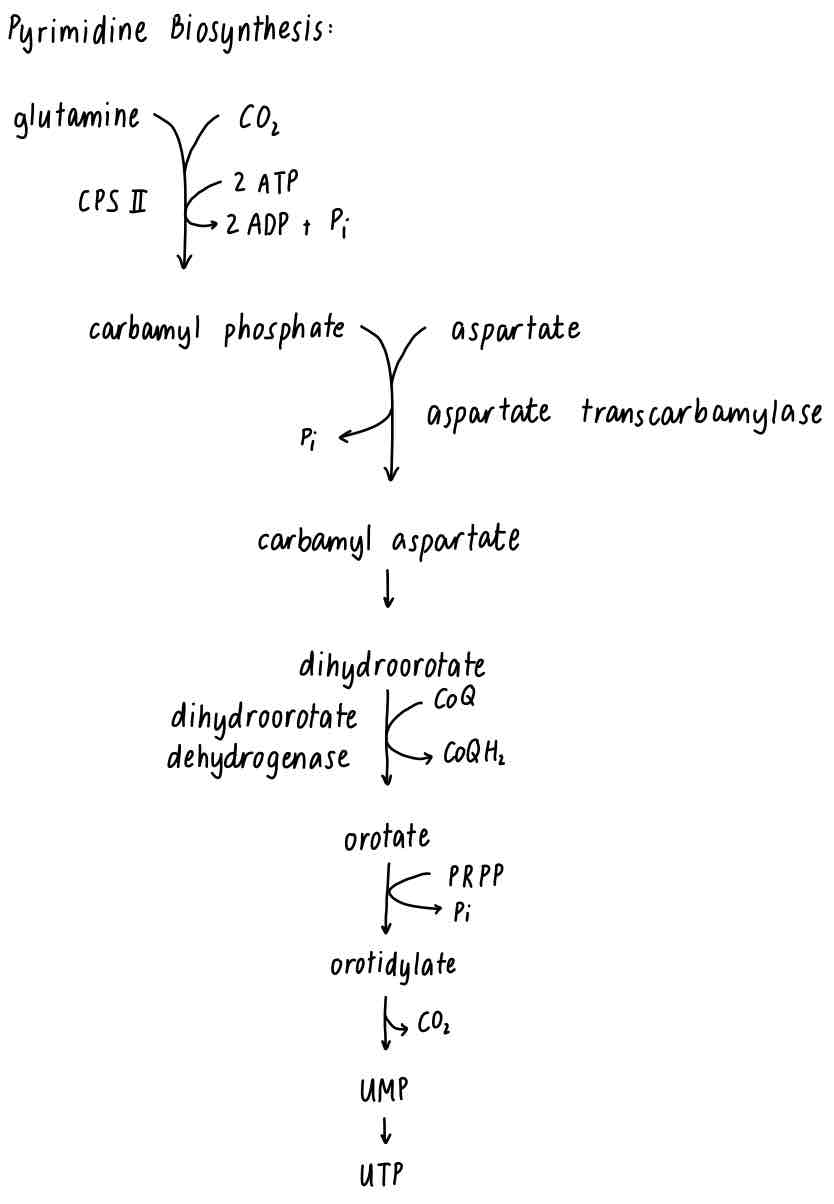 Pyrimidine Biosynthesis:
glutamine CO₂
2 ATP
CPS II
2 ADP + Pi
carbamyl phosphate aspartate
aspartate transcarbamylase
Pi
carbamyl aspartate
dihydroorotate
CoQ
dihydroorotate
dehydrogenase CoQH₂
orotate
PRPP
Pi
orotidylate
CO₂
UMP
UTP